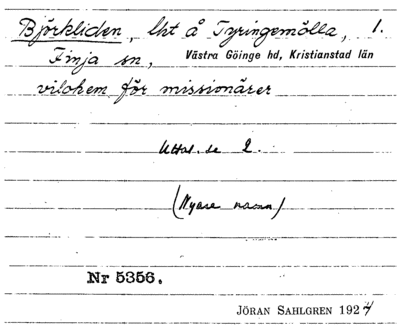 Björkliden, lht å Tyringemölla, 1.
Finja sn, Västra Göinge hd, Kristianstad län
vilohem för missionärer
Uttal. se 2.
(Nyare namn)
Nr 5356.
JÖRAN SAHLGREN 1924